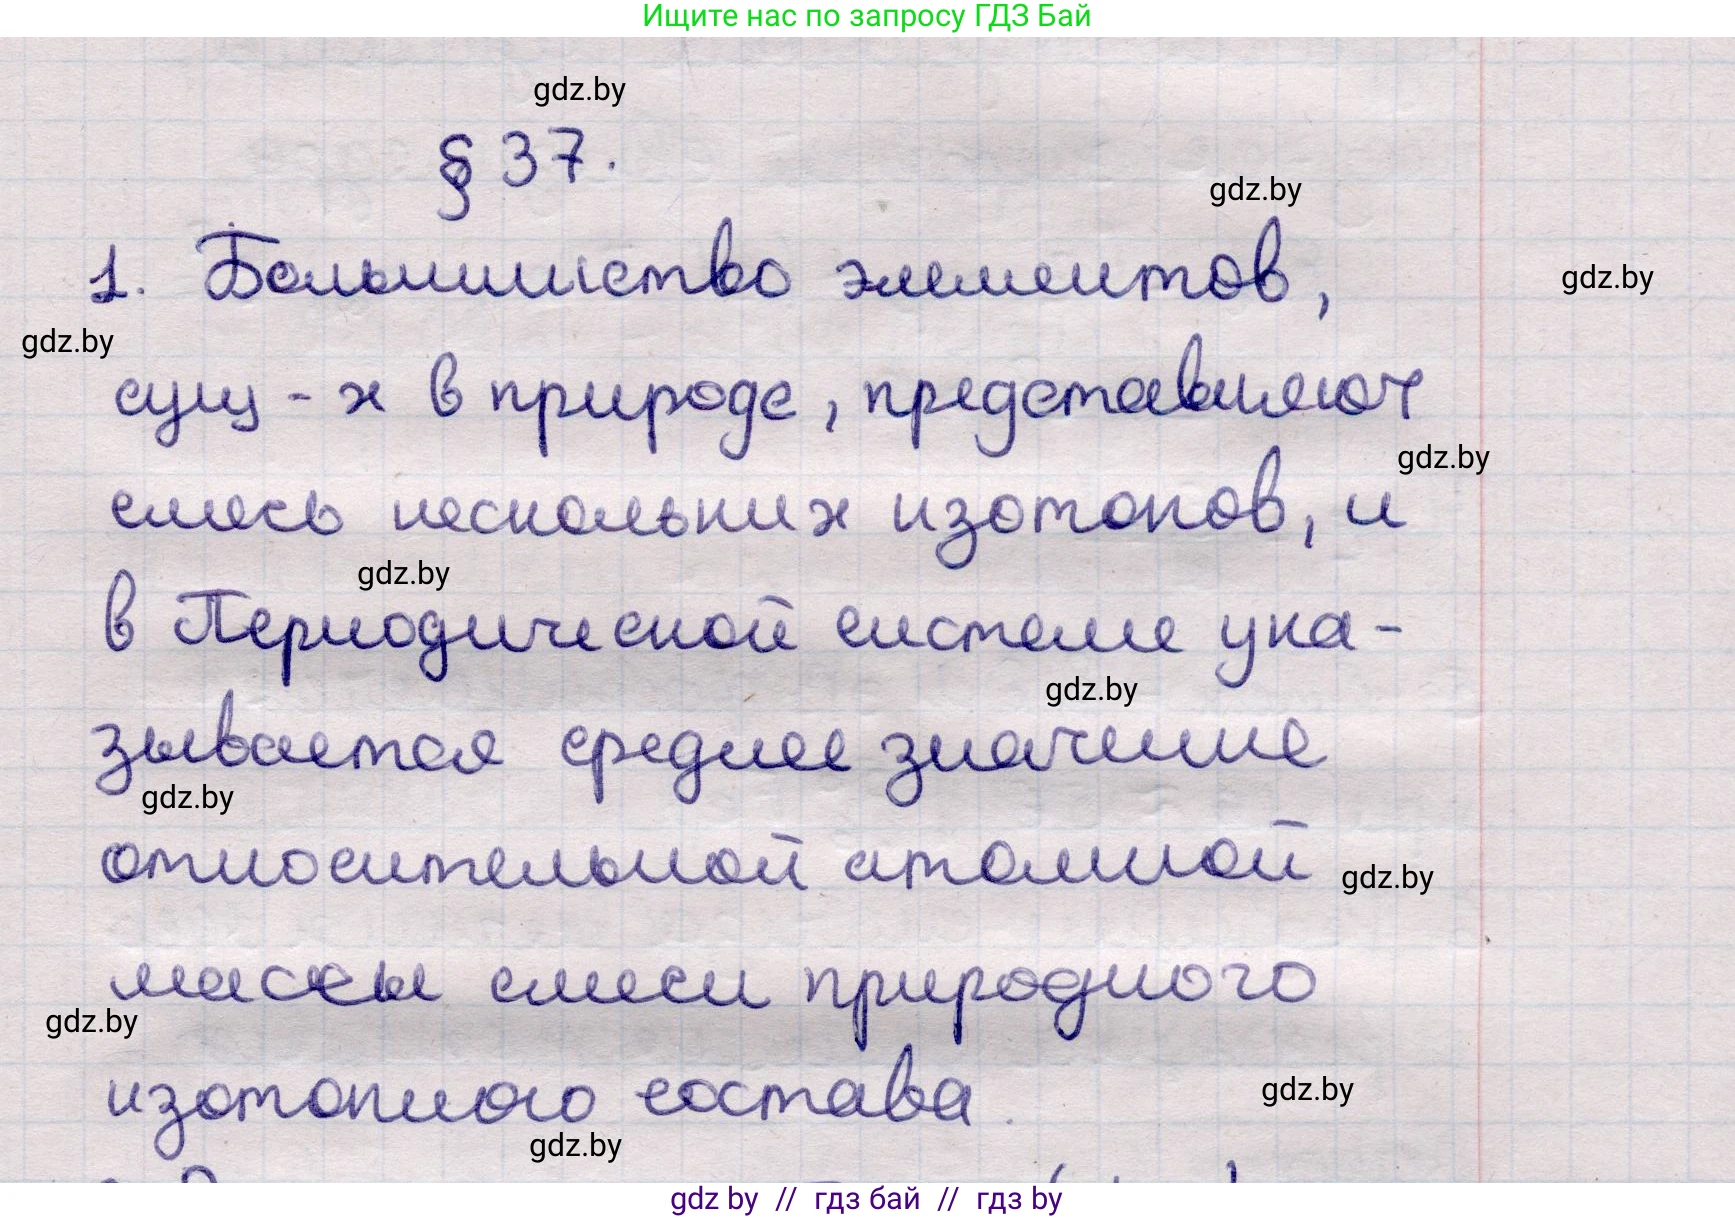 Ищите нас по запросу ГДЗ Бай
gdz.by
§ 37.
gdz.by
1. Большинство элементов,
gdz.by
gdz.by
сущ-х в природе, представляют
gdz.by
смесь нескольких изотопов, и
gdz.by
в Периодической системе ука-
gdz.by
зывается среднее значение
gdz.by
относительной атомной
gdz.by
массы смеси природного
gdz.by
изотопного состава.
gdz.by
gdz.by
gdz by // гдз бай // гдз by